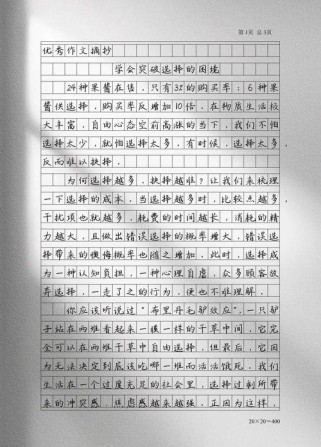 第 1页 总 3页
优秀作文摘抄
学会突破选择的困境
24种果酱在售，只有3%的购买率；6种
果酱供选择，购买率反增加10倍，在物质生活极
大丰富，自由心态空前高涨的当下，我们不怕
选择太少，就怕选择太多，有时候，选择太多，
反而难以抉择。
为何选择越多，抉择越难？让我们来梳理
一下选择的成本，当选择越多时，比较点越多，
干扰项也就越多，耗费的时间越长，消耗的精
力越大，且做出错误选择的概率增大，错误选
择带来的懊悔概率也随之增加，此时，选择成
为一种认知负担，一种心理自虐，众多顾客放
弃选择，一走了之的行为，便也不难理解。
你应该听说过“布里丹毛驴效应”，一只驴
子站在两堆看起来一模一样的干草中间，它完
全可以在两堆干草中自由选择，但最后，它因
为无法决定到底该吃哪一堆而活活饿死，我们
生活在一个过度充足的社会里，选择过剩所带
来的冲突感，焦虑感越来越强，正因为这样，
20×20=400